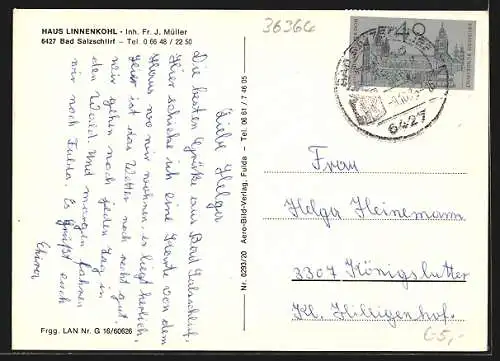 HAUS LINNENKOHL - Inh. Fr. J. Müller
6427 Bad Salzschlirf – Tel 0 66 48 / 22 50
36366
40
6427
Liebe Helga
Die besten Grüße aus Bad Salzschlirf.
Hier schicke ich eine Karte von dem
Haus wo wir wohnen, es liegt herrlich,
hier ist das Wetter noch recht gut.
wir gehen noch jeden Tag in
den Wald. Und morgen fahren
wir nach Fulda. Es grüßt euch
Nr. 0293/20 Aero-Bild-Verlag, Fulda – Tel. 06 61 / 7 46 05
Frau
Helga Heinemann
3307 Königslutter
Kl. Heiligenhof.
€5,-
Frgg. LAN Nr. G 16/60626